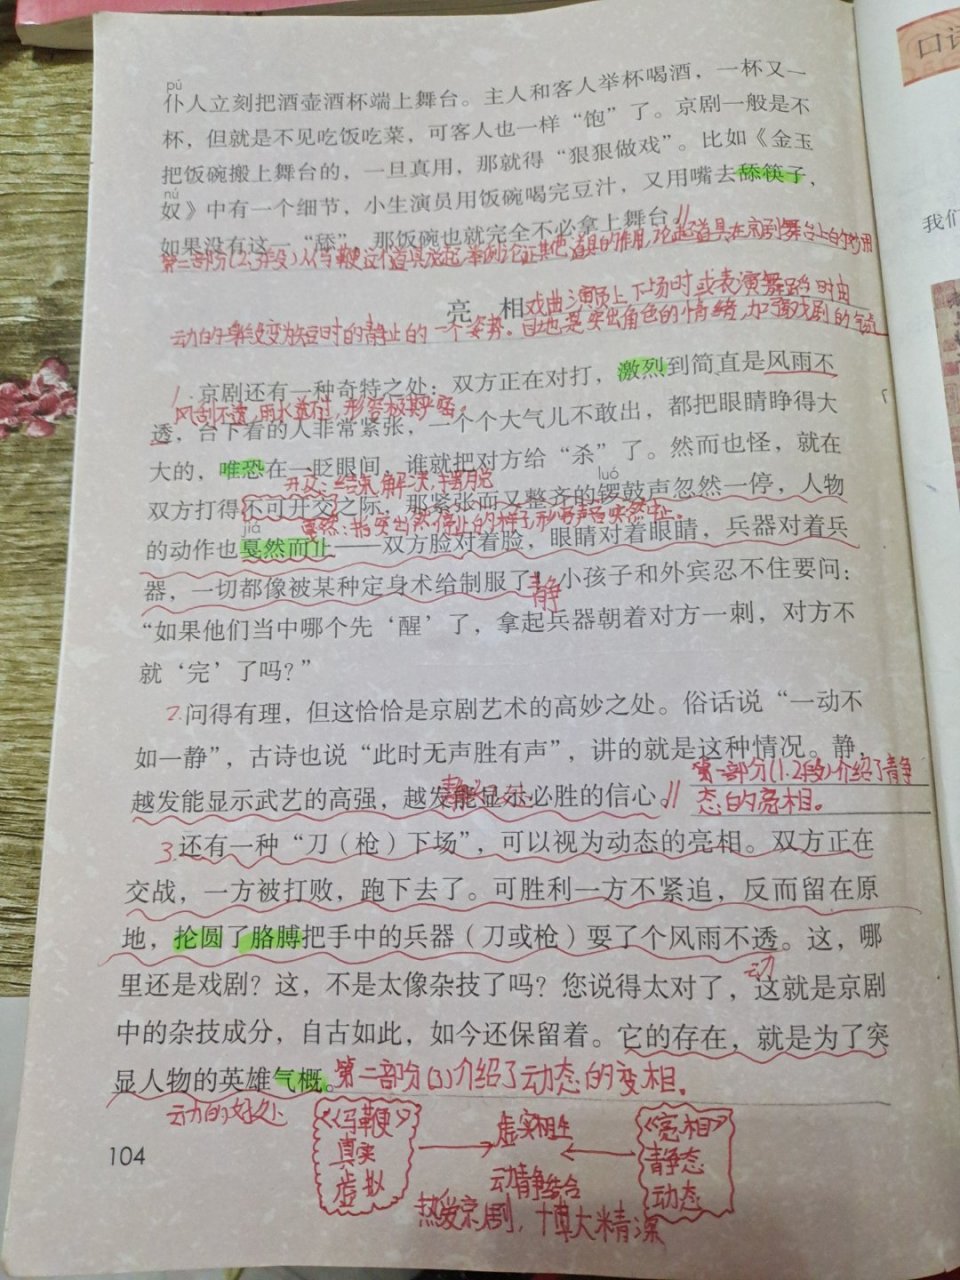 pú
仆人立刻把酒壶酒杯端上舞台。主人和客人举杯喝酒，一杯又一
杯，但就是不见吃饭吃菜，可客人也一样“饱”了。京剧一般是不
把饭碗搬上舞台的，一旦真用，那就得“狠狠做戏”。比如《金玉
nú
奴》中有一个细节，小生演员用饭碗喝完豆汁，又用嘴去舔筷子，
如果没有这一“舔”，那饭碗也就完全不必拿上舞台。//
第二部分(2.3年段)从马鞭这个道具说起,举例论证其他道具的作用,论述了道具在京剧舞台上的妙用
亮 相 戏曲演员上下场时或表演舞蹈时由
动的舞蹈变为短时的静止的一个姿势。目的是突出角色的情绪,加强戏剧的气氛
1. 京剧还有一种奇特之处：双方正在对打，激烈到简直是风雨不
风刮不透,雨水进不过,形容极其严密。
透，台下看的人非常紧张，一个个大气儿不敢出，都把眼睛睁得大
大的，唯恐在一眨眼间，谁就把对方给“杀”了。然而也怪，就在
开交：结束,解决,摆脱 luó
双方打得不可开交之际，那紧张而又整齐的锣鼓声忽然一停，人物
jiá 戛然：指突出然停止的样子,形容声音突然中止。
的动作也戛然而止——双方脸对着脸，眼睛对着眼睛，兵器对着兵
器，一切都像被某种定身术给制服了。静 小孩子和外宾忍不住要问：
“如果他们当中哪个先‘醒’了，拿起兵器朝着对方一刺，对方不
就‘完’了吗？”
2. 问得有理，但这恰恰是京剧艺术的高妙之处。俗话说“一动不
如一静”，古诗也说“此时无声胜有声”，讲的就是这种情况。静，
第一部分(1.2段)介绍了静
越发能显示武艺的高强，越发能显示必胜的信心。//
态的亮相。
3. 还有一种“刀（枪）下场”，可以视为动态的亮相。双方正在
交战，一方被打败，跑下去了。可胜利一方不紧追，反而留在原
地，抡圆了胳膊把手中的兵器（刀或枪）耍了个风雨不透。这，哪
动
里还是戏剧？这，不是太像杂技了吗？您说得太对了，这就是京剧
中的杂技成分，自古如此，如今还保留着。它的存在，就是为了突
显人物的英雄气概。第二部分(3)介绍了动态的变相。
动的好处
《马鞭》 真实 虚拟
虚实相生
动静结合
《亮相》 静态 动态
热爱京剧，博大精深
104
口语
我们